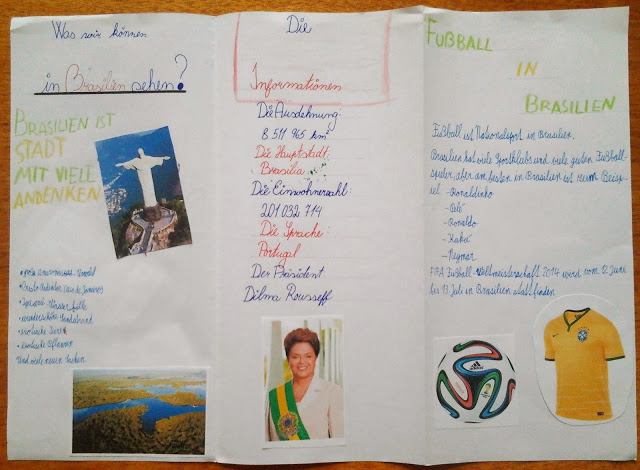 Was wir können
in Brasilien sehen?
BRASILIEN IST
STADT
MIT VIELE
ANDENKEN
Cristo Redentor
Wasserfälle
wunderschöne
exotische Tiere
exotische Pflanzen
Und viele neuen Sachen
Die
Informationen
Die Ausdehnung:
8 511 965 km²
Die Hauptstadt:
Brasilia
Die Einwohnerzahl:
201 032 714
Die Sprache:
Portugal
Der Präsident
Dilma Rousseff
FUßBALL
IN
BRASILIEN
Fußball ist Nationalsport in Brasilien.
Brasilien hat viele Sportklubs und viele guten Fußball-
spieler, aber am besten in Brasilien ist zum Beispi-
el - Ronaldinho
- Pelé
- Ronaldo
- Kaká
- Neymar
FIFA Fußball-Weltmeisterschaft 2014 wird vom 12 Juni
bis 13 Juli in Brasilien stattfinden
adidas